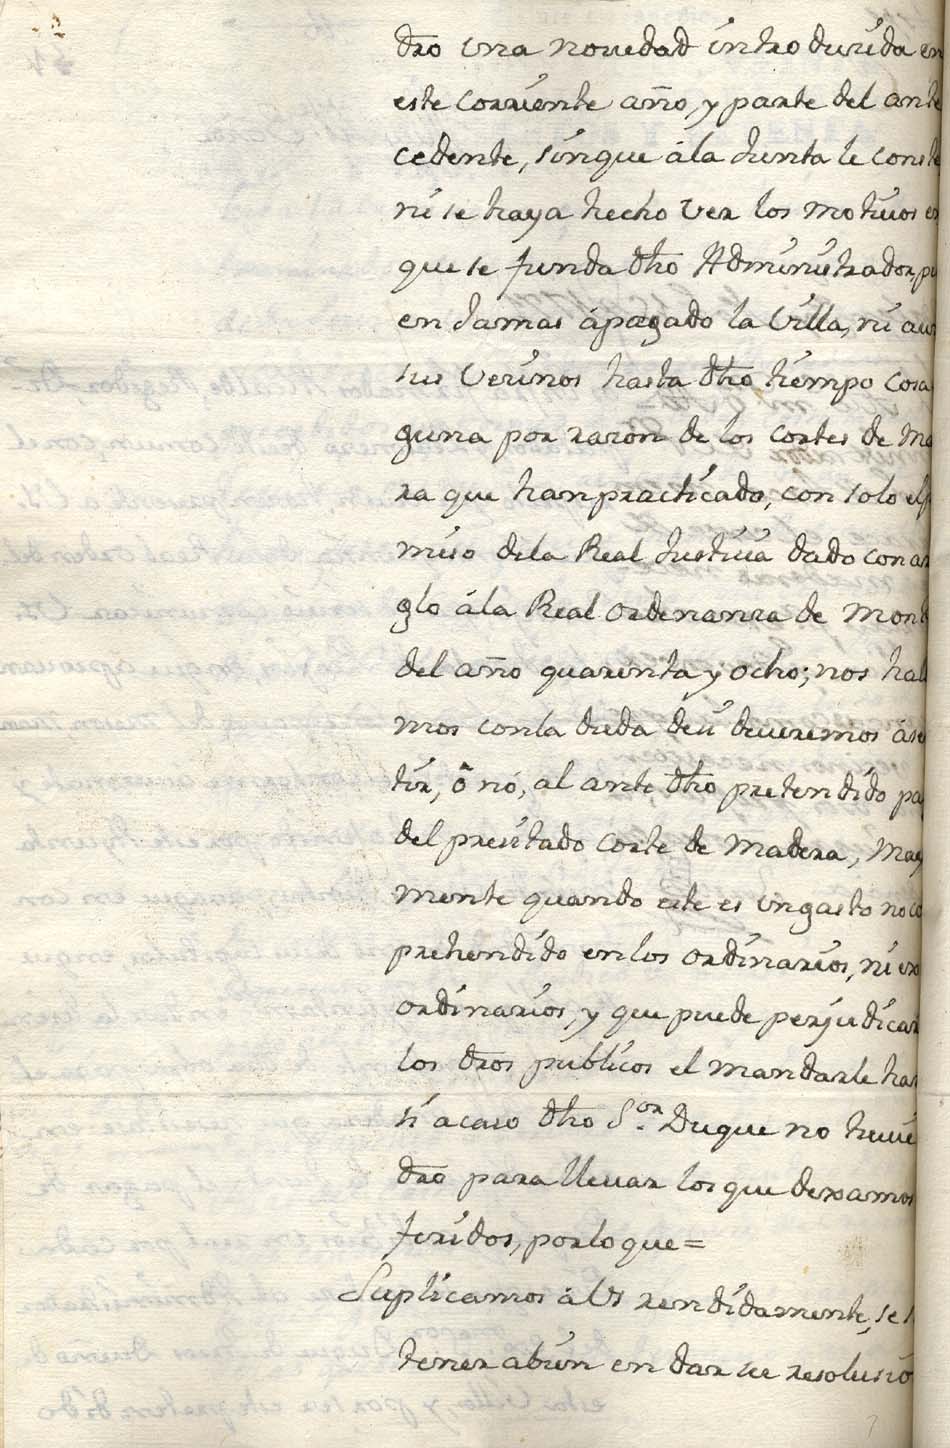 dro una novedad introducida en
este corriente año, y parte del ante
cedente, sinque ála Junta le conste
ni se haya hecho ver los motivos en
que se funda dho Administrador, pu
en Jamas á pagado la Villa, ni aun
sus Vecinos hasta dho tiempo cosa
guna por razon de los cortes de Ma
ra que han practicado, con solo el p
miso dela Real Justicia dado con ar
glo ála Real ordenanza de Mont
del año quarenta y ocho; nos hall
mos conla duda desi deveremos áse
tir, ó nó, al ante dho pretendido pa
del precitado corte de Madera, May
mente quando este es un gasto no co
prehendido en los ordinarios, ni ex
ordinarios, y que puede perjudicar
los dros publicos el mandarle hac
si acaso dho S.or Duque no tuvie
dro para llevar los que dexamos
feridos, por lo que =
Suplicamos áVS rendidamente, se s
tener abien en dar su resolució